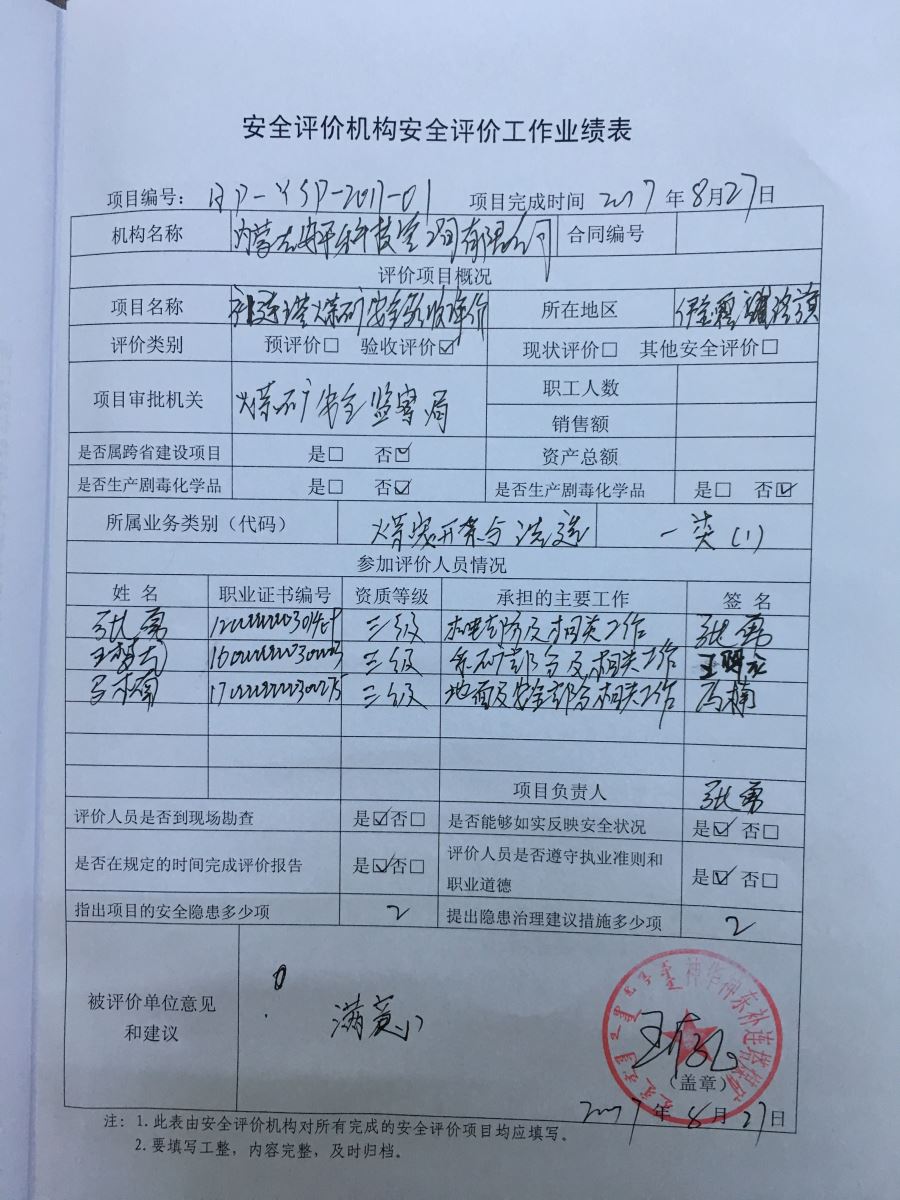 安全评价机构安全评价工作业绩表
项目编号： AP-YSP-2017-01 项目完成时间 2017 年 8月27日
机构名称 内蒙古安平科技 有限公司 合同编号
评价项目概况
项目名称 补连塔煤矿安全验收评价 所在地区 伊金霍洛旗
评价类别 预评价□ 验收评价☑ 现状评价□ 其他安全评价□
项目审批机关 煤矿安全监察局 职工人数
销售额
是否属跨省建设项目 是□ 否☑ 资产总额
是否生产剧毒化学品 是□ 否☑ 是否生产剧毒化学品 是□ 否☑
所属业务类别（代码） 煤炭开采与洗选 一类(1)
参加评价人员情况
姓 名 职业证书编号 资质等级 承担的主要工作 签 名
张勇 三级 机电部分及相关工作 张勇
三级 采矿部分及相关工作
冯楠 三级 地面及安全部分相关工作 冯楠
项目负责人 张勇
评价人员是否到现场勘查 是☑否□ 是否能够如实反映安全状况 是☑ 否□
是否在规定的时间完成评价报告 是☑否□ 评价人员是否遵守执业准则和
职业道德 是☑ 否□
指出项目的安全隐患多少项 2 提出隐患治理建议措施多少项 2
被评价单位意见
和建议
满意
神华神东补连塔煤矿
（盖章）
2017 年 8 月 27 日
注： 1. 此表由安全评价机构对所有完成的安全评价项目均应填写。
2. 要填写工整，内容完整，及时归档。